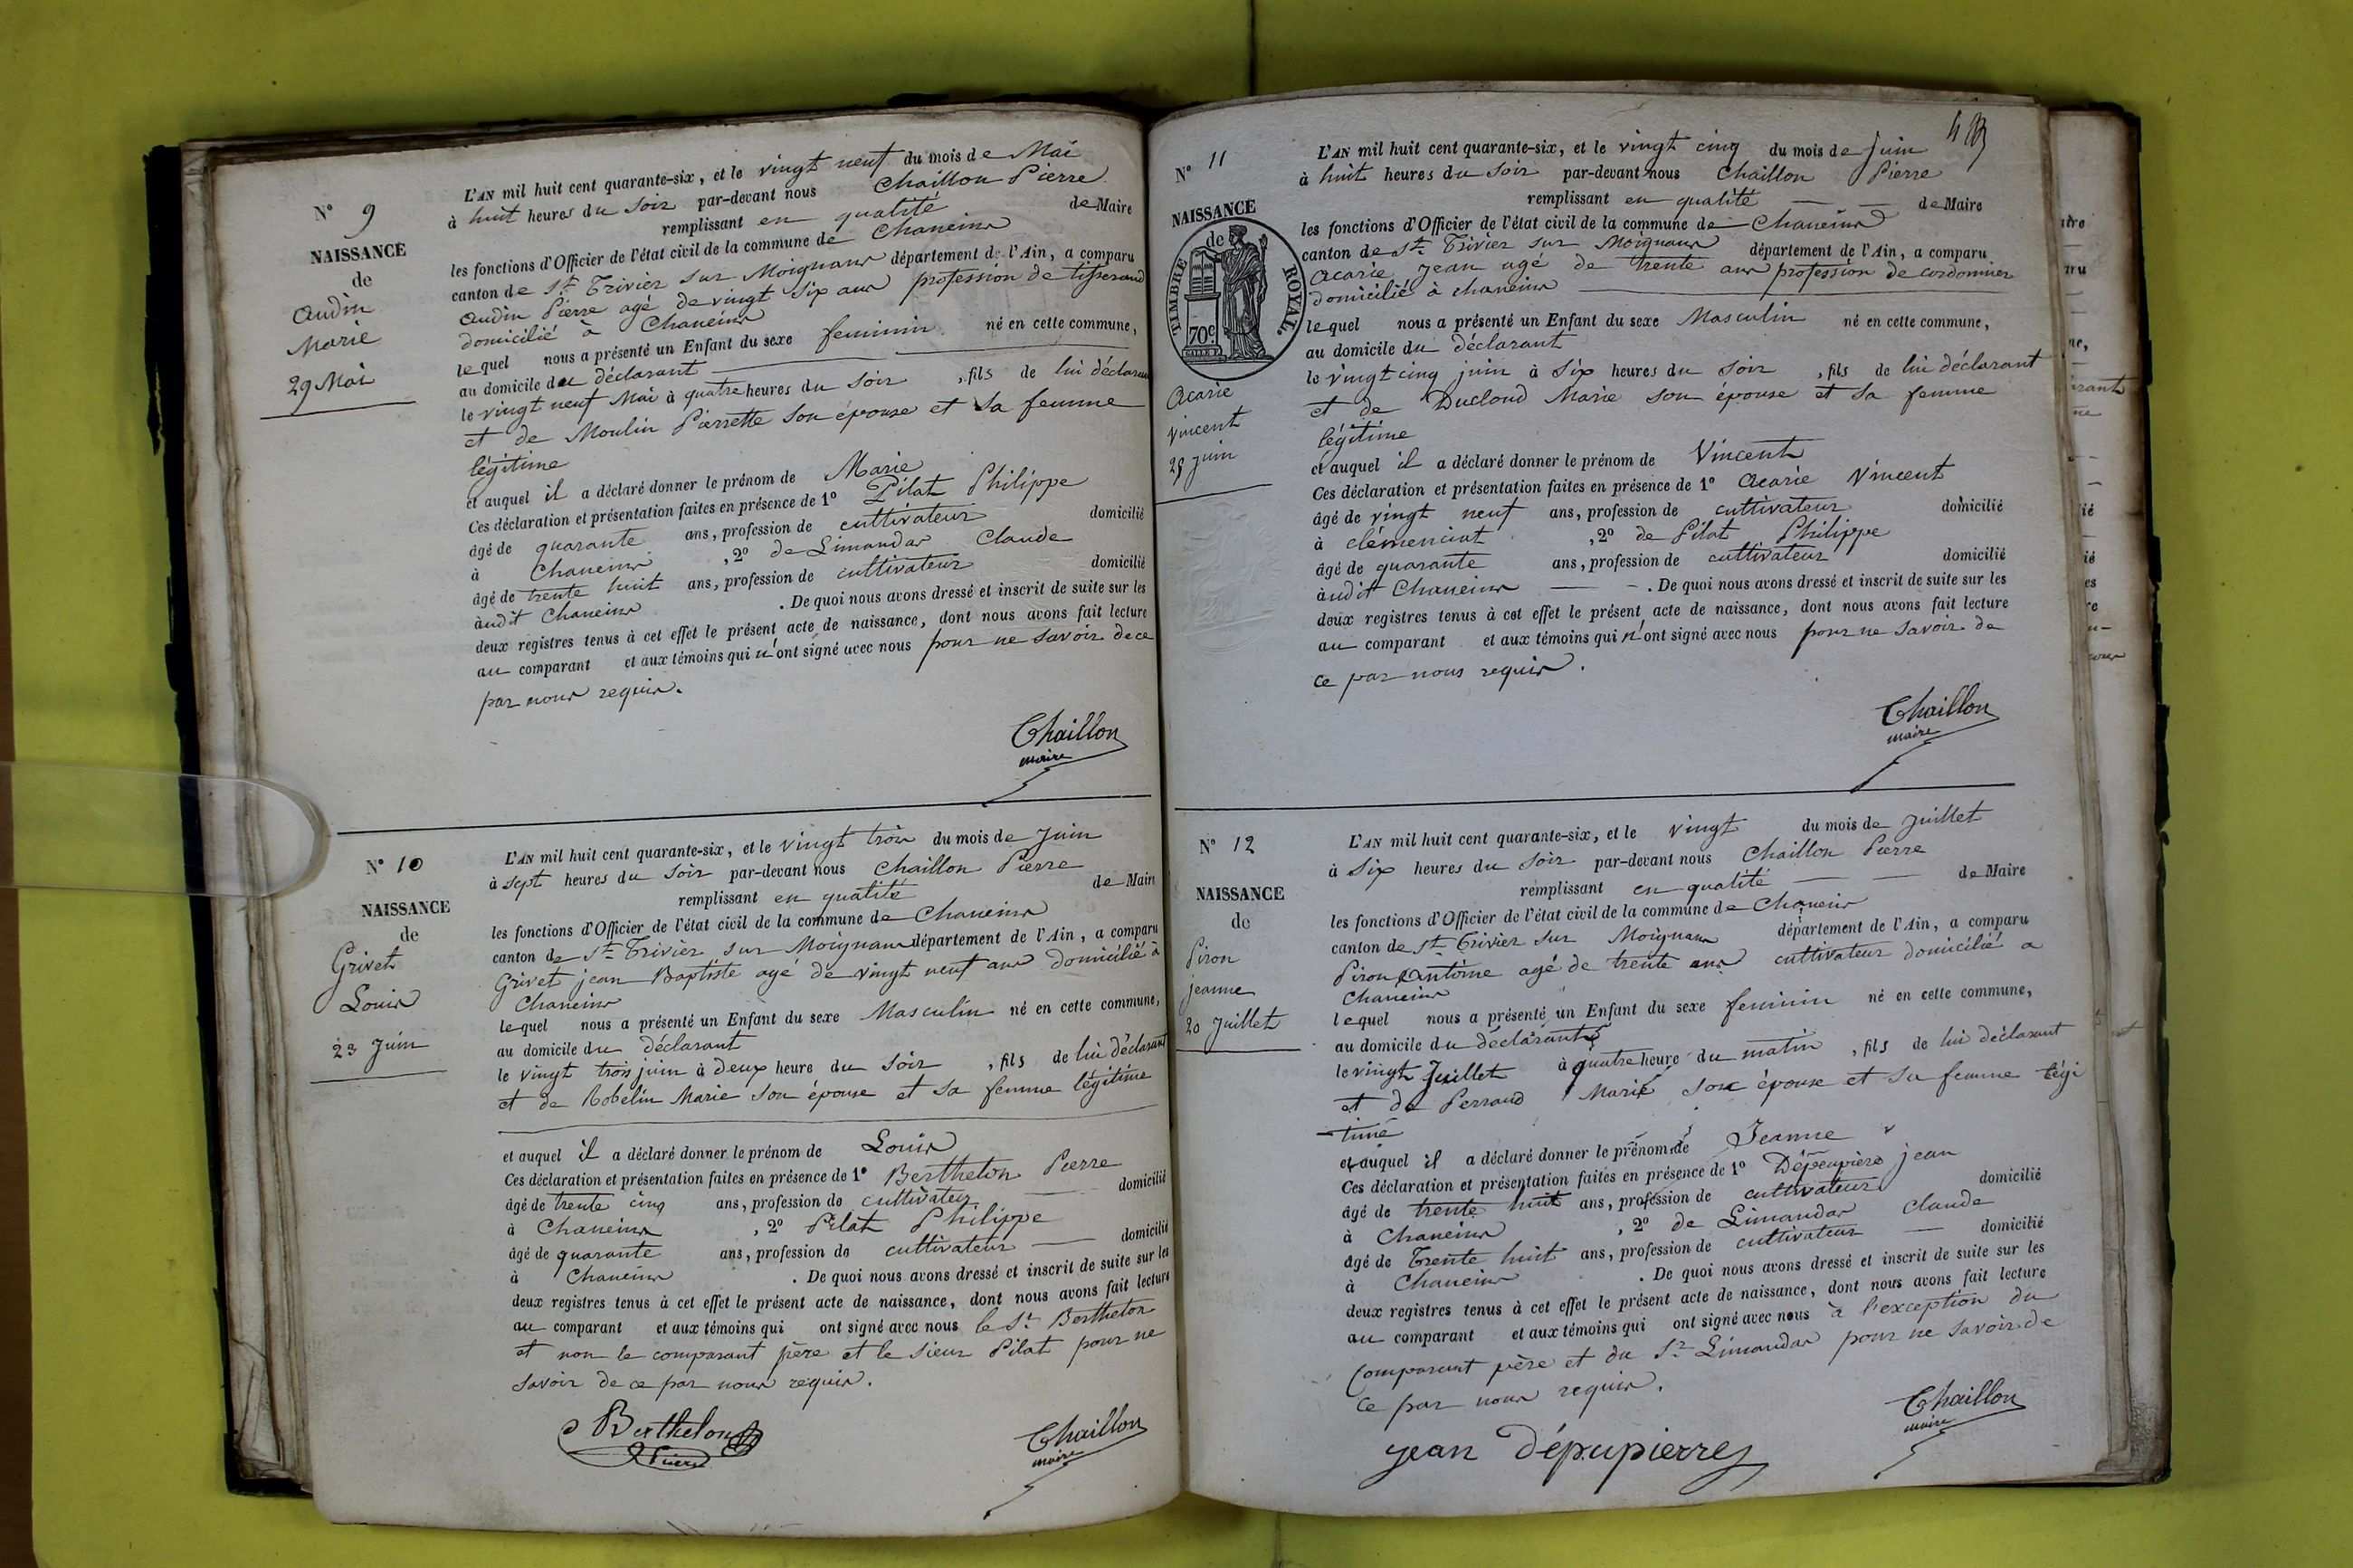 N° 9
NAISSANCE
de
Audin
Marie
29 Mai
L'AN mil huit cent quarante-six, et le vingt neuf du mois de Mai
à huit heures du soir par-devant nous Chaillon Pierre
remplissant en qualité de Maire
les fonctions d'Officier de l'état civil de la commune de Chaneins
canton de St Trivier sur Moignans département de l'Ain, a comparu
Audin Pierre agé de vingt six ans profession de tisserand
domicilié à Chaneins
lequel nous a présenté un Enfant du sexe feminin né en cette commune,
au domicile du déclarant
le vingt neuf Mai à quatre heures du soir , fils de lui déclarant
et de Moulin Pierrette son épouse et sa femme
légitime
et auquel il a déclaré donner le prénom de Marie
Ces déclaration et présentation faites en présence de 1° Pilat Philippe
âgé de quarante ans, profession de cultivateur domicilié
à Chaneins , 2° de Limandas Claude
âgé de trente huit ans, profession de cultivateur domicilié
àudit Chaneins . De quoi nous avons dressé et inscrit de suite sur les
deux registres tenus à cet effet le présent acte de naissance, dont nous avons fait lecture
au comparant et aux témoins qui n'ont signé avec nous pour ne savoir de ce
par nous requis.
Chaillon
maire
N° 10
NAISSANCE
de
Grivet
Louis
23 Juin
L'AN mil huit cent quarante-six, et le vingt trois du mois de Juin
à sept heures du soir par-devant nous Chaillon Pierre
remplissant en qualité de Maire
les fonctions d'Officier de l'état civil de la commune de Chaneins
canton de St Trivier sur Moignans département de l'Ain, a comparu
Grivet jean Baptiste agé de vingt neuf ans domicilié à
Chaneins
lequel nous a présenté un Enfant du sexe Masculin né en cette commune,
au domicile du déclarant
le vingt trois juin à deux heure du soir , fils de lui déclarant
et de Robelin Marie son épouse et sa femme légitime
et auquel il a déclaré donner le prénom de Louis
Ces déclaration et présentation faites en présence de 1° Berthelon Pierre
âgé de trente cinq ans, profession de cultivateur domicilié
à Chaneins , 2° Pilat Philippe
âgé de quarante ans, profession de cultivateur domicilié
à Chaneins . De quoi nous avons dressé et inscrit de suite sur les
deux registres tenus à cet effet le présent acte de naissance, dont nous avons fait lecture
au comparant et aux témoins qui ont signé avec nous le Sr Berthelon
et non le comparant père et le sieur Pilat pour ne
savoir de ce par nous requis.
Berthelon
Pierre
Chaillon
maire
N° 11
NAISSANCE
de
TIMBRE ROYAL
70c
Acarie
Vincent
25 juin
L'AN mil huit cent quarante-six, et le vingt cinq du mois de Juin
à huit heures du soir par-devant nous Chaillon Pierre
remplissant en qualité de Maire
les fonctions d'Officier de l'état civil de la commune de Chaneins
canton de St Trivier sur Moignans département de l'Ain, a comparu
Acarie Jean agé de trente ans profession de cordonnier
domicilié à chaneins
lequel nous a présenté un Enfant du sexe Masculin né en cette commune,
au domicile du déclarant
le vingt cinq juin à six heures du soir , fils de lui déclarant
et de Ducloud Marie son épouse et sa femme
légitime
et auquel il a déclaré donner le prénom de Vincent
Ces déclaration et présentation faites en présence de 1° Acarie Vincent
âgé de vingt neuf ans, profession de cultivateur domicilié
à clémenciat , 2° de Pilat Philippe
âgé de quarante ans, profession de cultivateur domicilié
àudit Chaneins . De quoi nous avons dressé et inscrit de suite sur les
deux registres tenus à cet effet le présent acte de naissance, dont nous avons fait lecture
au comparant et aux témoins qui n'ont signé avec nous pour ne savoir de
ce par nous requis.
Chaillon
maire
N° 12
NAISSANCE
de
Piron
jeanne
20 Juillet
L'AN mil huit cent quarante-six, et le vingt du mois de Juillet
à six heures du soir par-devant nous Chaillon Pierre
remplissant en qualité de Maire
les fonctions d'Officier de l'état civil de la commune de Chaneins
canton de St Trivier sur Moignans département de l'Ain, a comparu
Piron Antoine agé de trente ans cultivateur domicilié a
Chaneins
lequel nous a présenté un Enfant du sexe feminin né en cette commune,
au domicile du déclarant
le vingt Juillet à quatre heure du matin , fils de lui déclarant
et de Perraud Marie son épouse et sa femme légi
time
et auquel il a déclaré donner le prénom de Jeanne
Ces déclaration et présentation faites en présence de 1° Dépeupière jean
âgé de trente huit ans, profession de cultivateur domicilié
à Chaneins , 2° de Limandas Claude
âgé de Trente huit ans, profession de cultivateur domicilié
à Chaneins . De quoi nous avons dressé et inscrit de suite sur les
deux registres tenus à cet effet le présent acte de naissance, dont nous avons fait lecture
au comparant et aux témoins qui ont signé avec nous à l'exception du
Comparant père et du Sr Limandas pour ne savoir de
ce par nous requis.
Chaillon
maire
jean Dépupierres